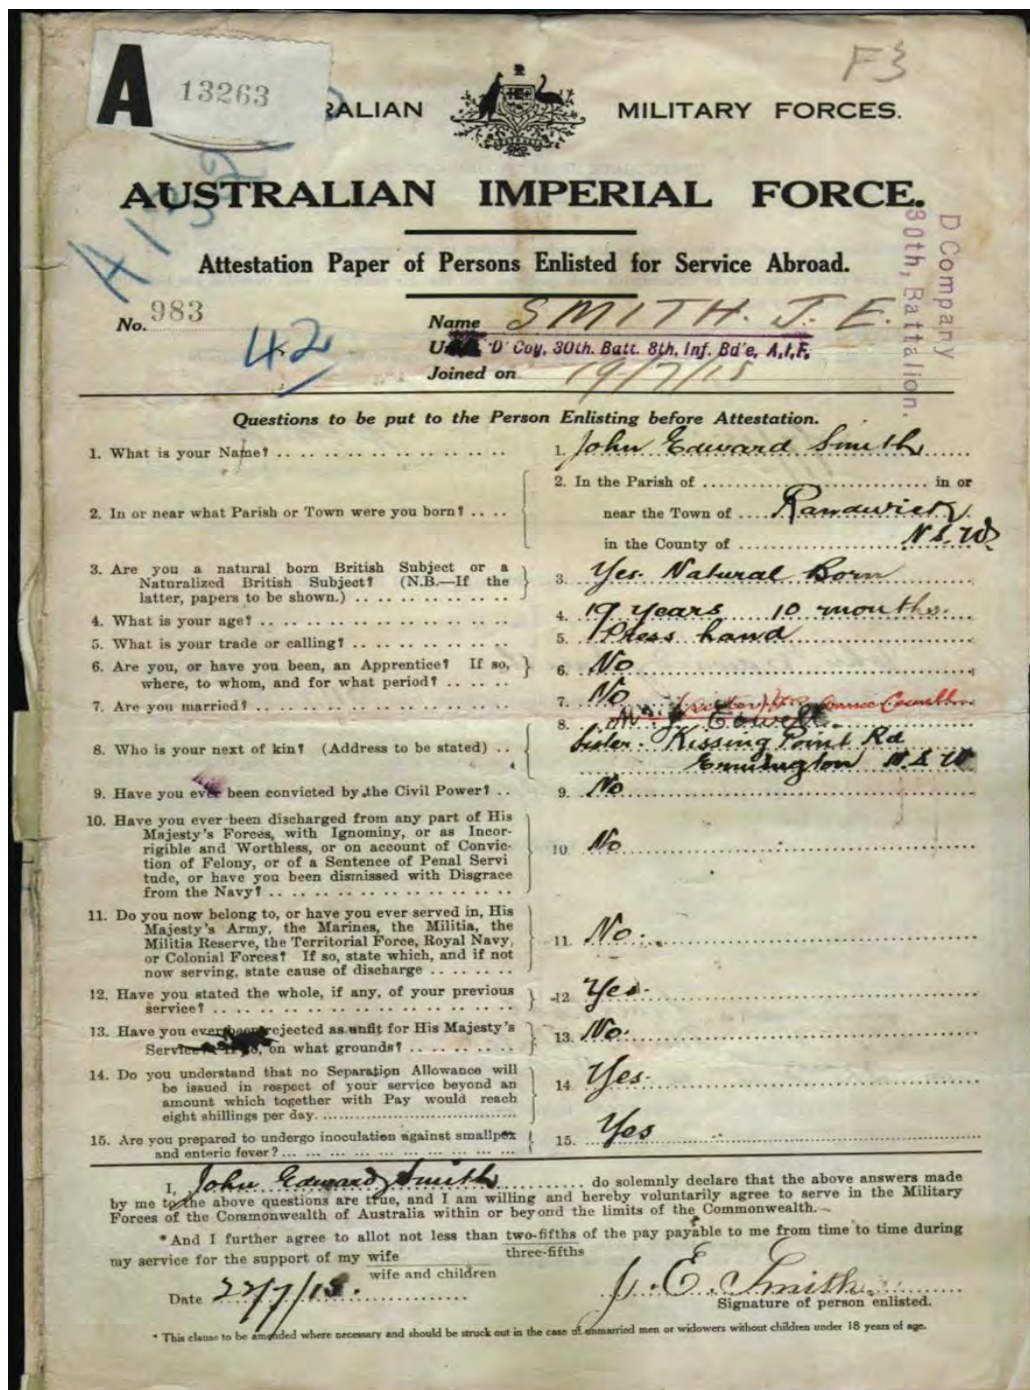 F3
A 13263
RALIAN MILITARY FORCES.
AUSTRALIAN IMPERIAL FORCE.
Attestation Paper of Persons Enlisted for Service Abroad.
D Company
30th, Battalion.
No. 983
42
Name SMITH. J. E.
'D' Coy, 30th. Batt. 8th, Inf. Bd'e, A.I.F.
Joined on 19/7/15
Questions to be put to the Person Enlisting before Attestation.
1. What is your Name? 1. John Edward Smith
2. In or near what Parish or Town were you born? 2. In the Parish of in or
near the Town of Randwick
in the County of N.S.W
3. Are you a natural born British Subject or a
Naturalized British Subject? (N.B.—If the
latter, papers to be shown.) 3. Yes. Natural Born
4. What is your age? 4. 19 years 10 months.
5. What is your trade or calling? 5. Press hand
6. Are you, or have you been, an Apprentice? If so,
where, to whom, and for what period? 6. No
7. Are you married? 7. No
8. Who is your next of kin? (Address to be stated) 8.
Sister. Kissing Point Rd
Ermington N.S.W
9. Have you ever been convicted by the Civil Power? 9. No
10. Have you ever been discharged from any part of His
Majesty's Forces, with Ignominy, or as Incor-
rigible and Worthless, or on account of Convic-
tion of Felony, or of a Sentence of Penal Servi
tude, or have you been dismissed with Disgrace
from the Navy? 10 No
11. Do you now belong to, or have you ever served in, His
Majesty's Army, the Marines, the Militia, the
Militia Reserve, the Territorial Force, Royal Navy,
or Colonial Forces? If so, state which, and if not
now serving, state cause of discharge 11. No.
12. Have you stated the whole, if any, of your previous
service? 12 Yes.
13. Have you ever been rejected as unfit for His Majesty's
Service? If so, on what grounds? 13. No.
14. Do you understand that no Separation Allowance will
be issued in respect of your service beyond an
amount which together with Pay would reach
eight shillings per day. 14 Yes.
15. Are you prepared to undergo inoculation against smallpox
and enteric fever? 15. Yes
I, John Edward Smith do solemnly declare that the above answers made
by me to the above questions are true, and I am willing and hereby voluntarily agree to serve in the Military
Forces of the Commonwealth of Australia within or beyond the limits of the Commonwealth.
*And I further agree to allot not less than two-fifths of the pay payable to me from time to time during
three-fifths
my service for the support of my wife
wife and children
Date 22/7/15. J. E. Smith
Signature of person enlisted.
* This clause to be amended where necessary and should be struck out in the case of unmarried men or widowers without children under 18 years of age.